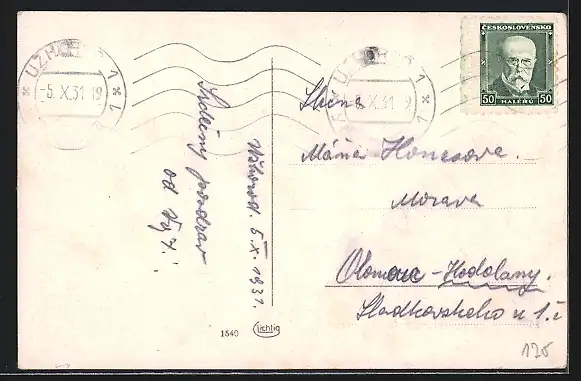 UŽHOROD 1
-5.X.31 19
* 1 *
UŽHOROD 1
-5.X.31 19
ČESKOSLOVENSKO
50 HALÉŘŮ 50
Srdečný pozdrav
od
Užhorod. 5/X. 1931.
Slečna
Máňa Honesova.
Morava
Olomouc - Hodolany.
Sladkovskeho u 1. č
1540 Lichtig
175